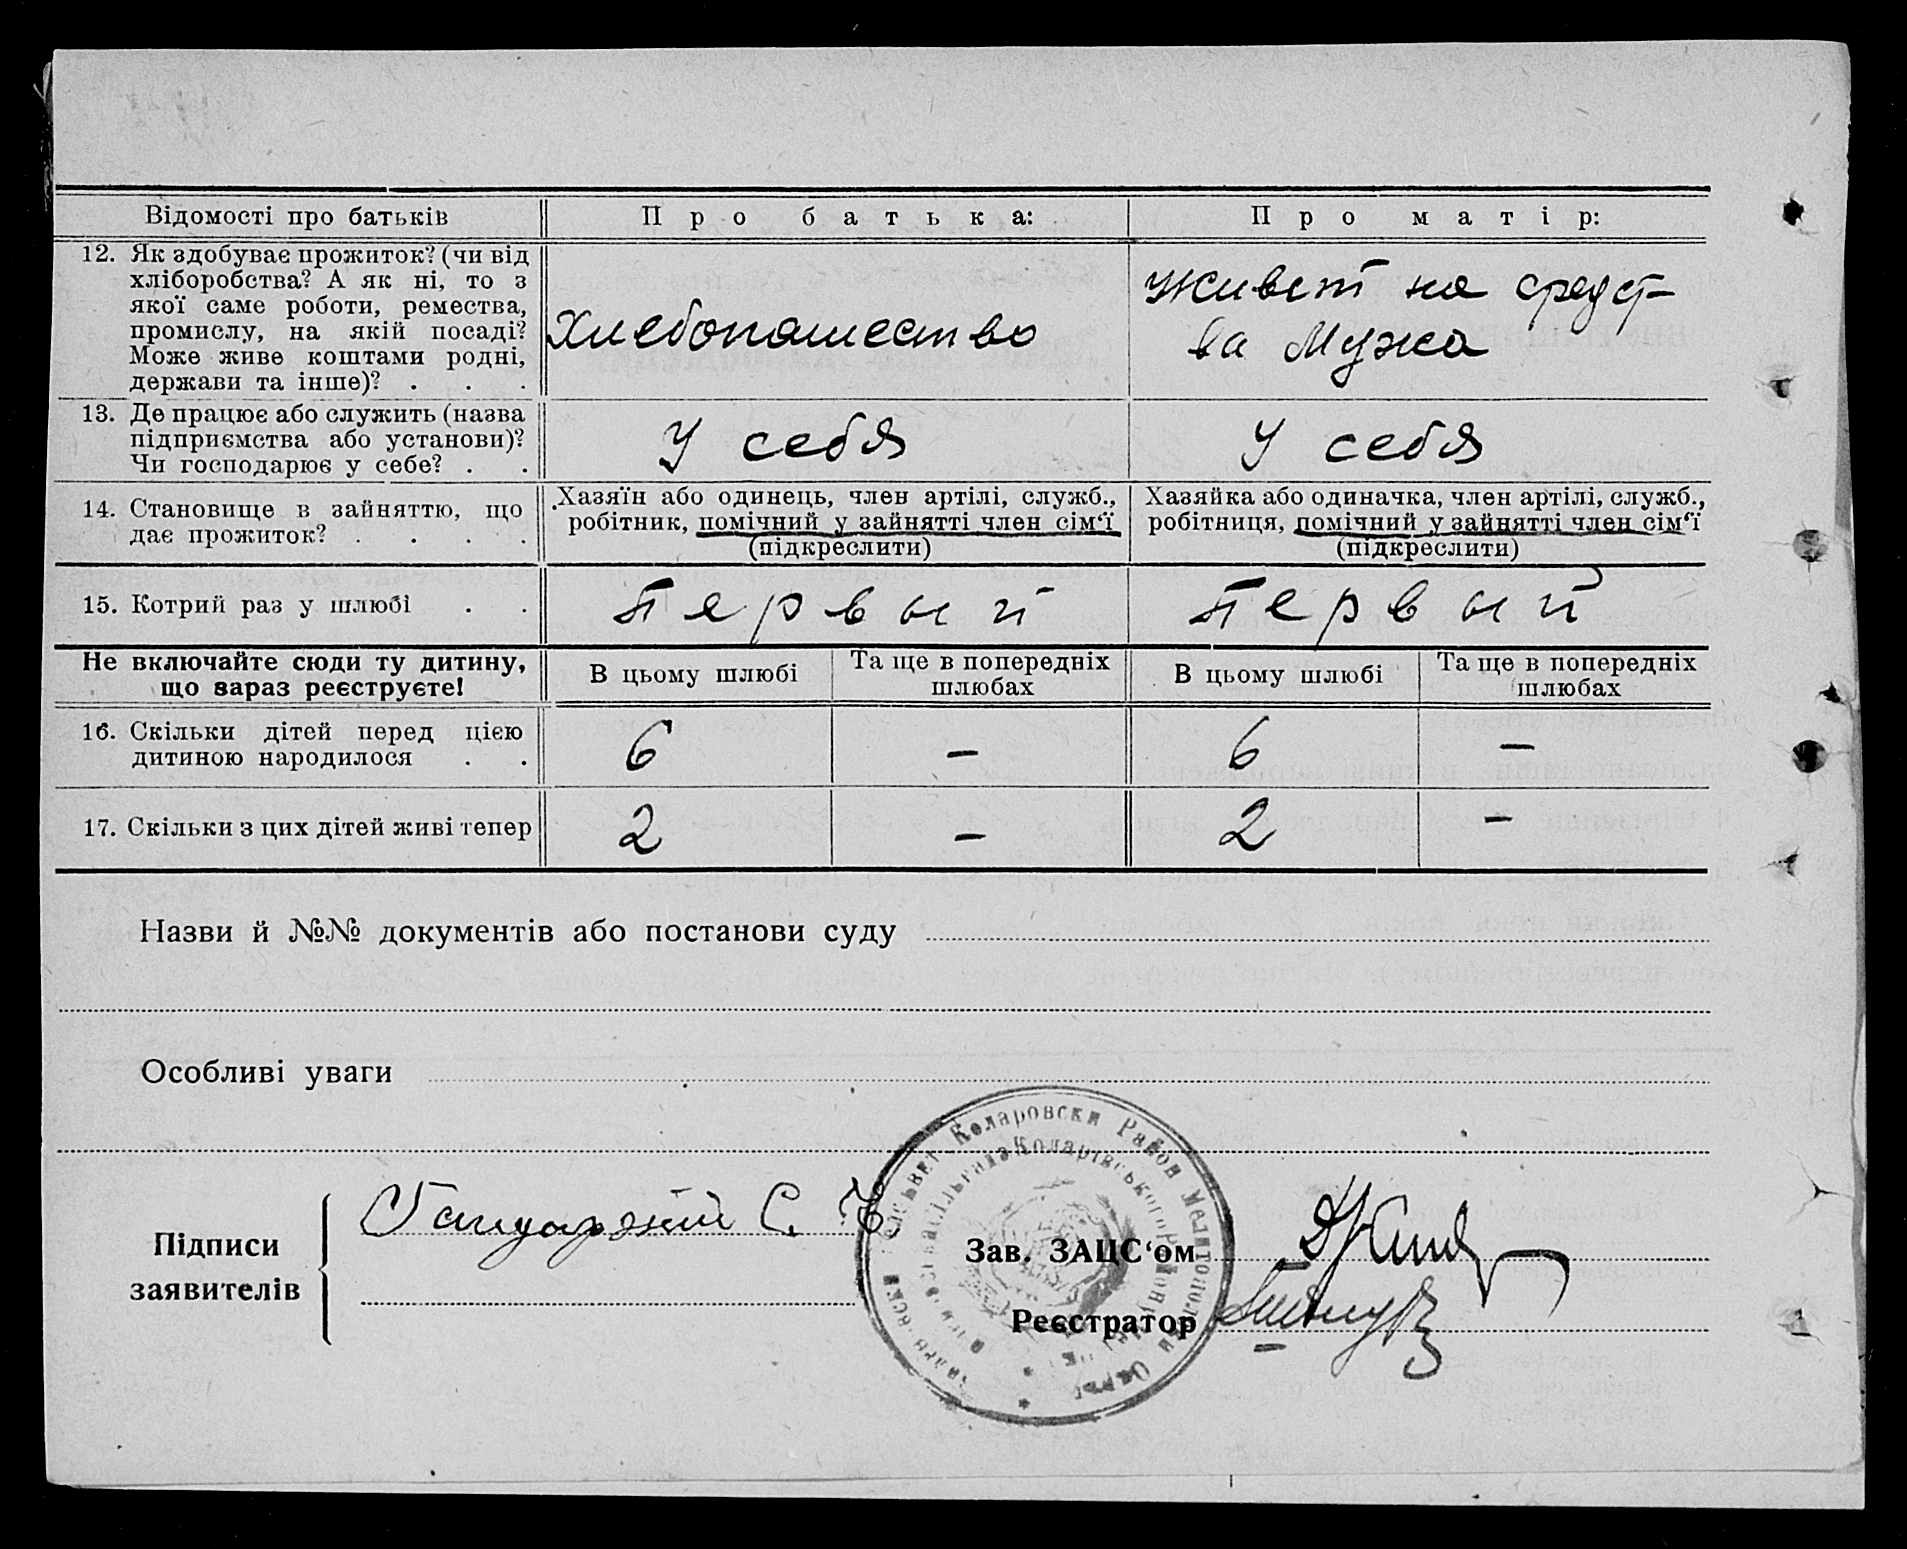 Відомості про батьків
Про батька:
Про матір:
12. Як здобуває прожиток? (чи від
хліборобства? А як ні, то з
якої саме роботи, ремества,
промислу, на якій посаді?
Може живе коштами родні,
держави та інше)? . . .
Хлебопашество
Живет на средст-
ва Мужа
13. Де працює або служить (назва
підприємства або установи)?
Чи господарює у себе? . .
У себя
У себя
14. Становище в зайняттю, що
дає прожиток? . . . .
Хазяїн або одинець, член артілі, служб.,
робітник, помічний у зайнятті член сім‘ї
(підкреслити)
Хазяйка або одиначка, член артілі, служб.,
робітниця, помічний у зайнятті член сім‘ї
(підкреслити)
15. Котрий раз у шлюбі . .
Первый
Первый
Не включайте сюди ту дитину,
що зараз реєструєте!
В цьому шлюбі
Та ще в попередніх
шлюбах
В цьому шлюбі
Та ще в попередніх
шлюбах
16. Скільки дітей перед цією
дитиною народилося . .
6
—
6
—
17. Скільки з цих дітей живі тепер
2
—
2
—
Назви й №№ документів або постанови суду
Особливі уваги
Коларовски Район Мелитополски Окръг
Коларівського
Підписи
заявителів
С.
Зав. ЗАЦС‘ом
Реєстратор